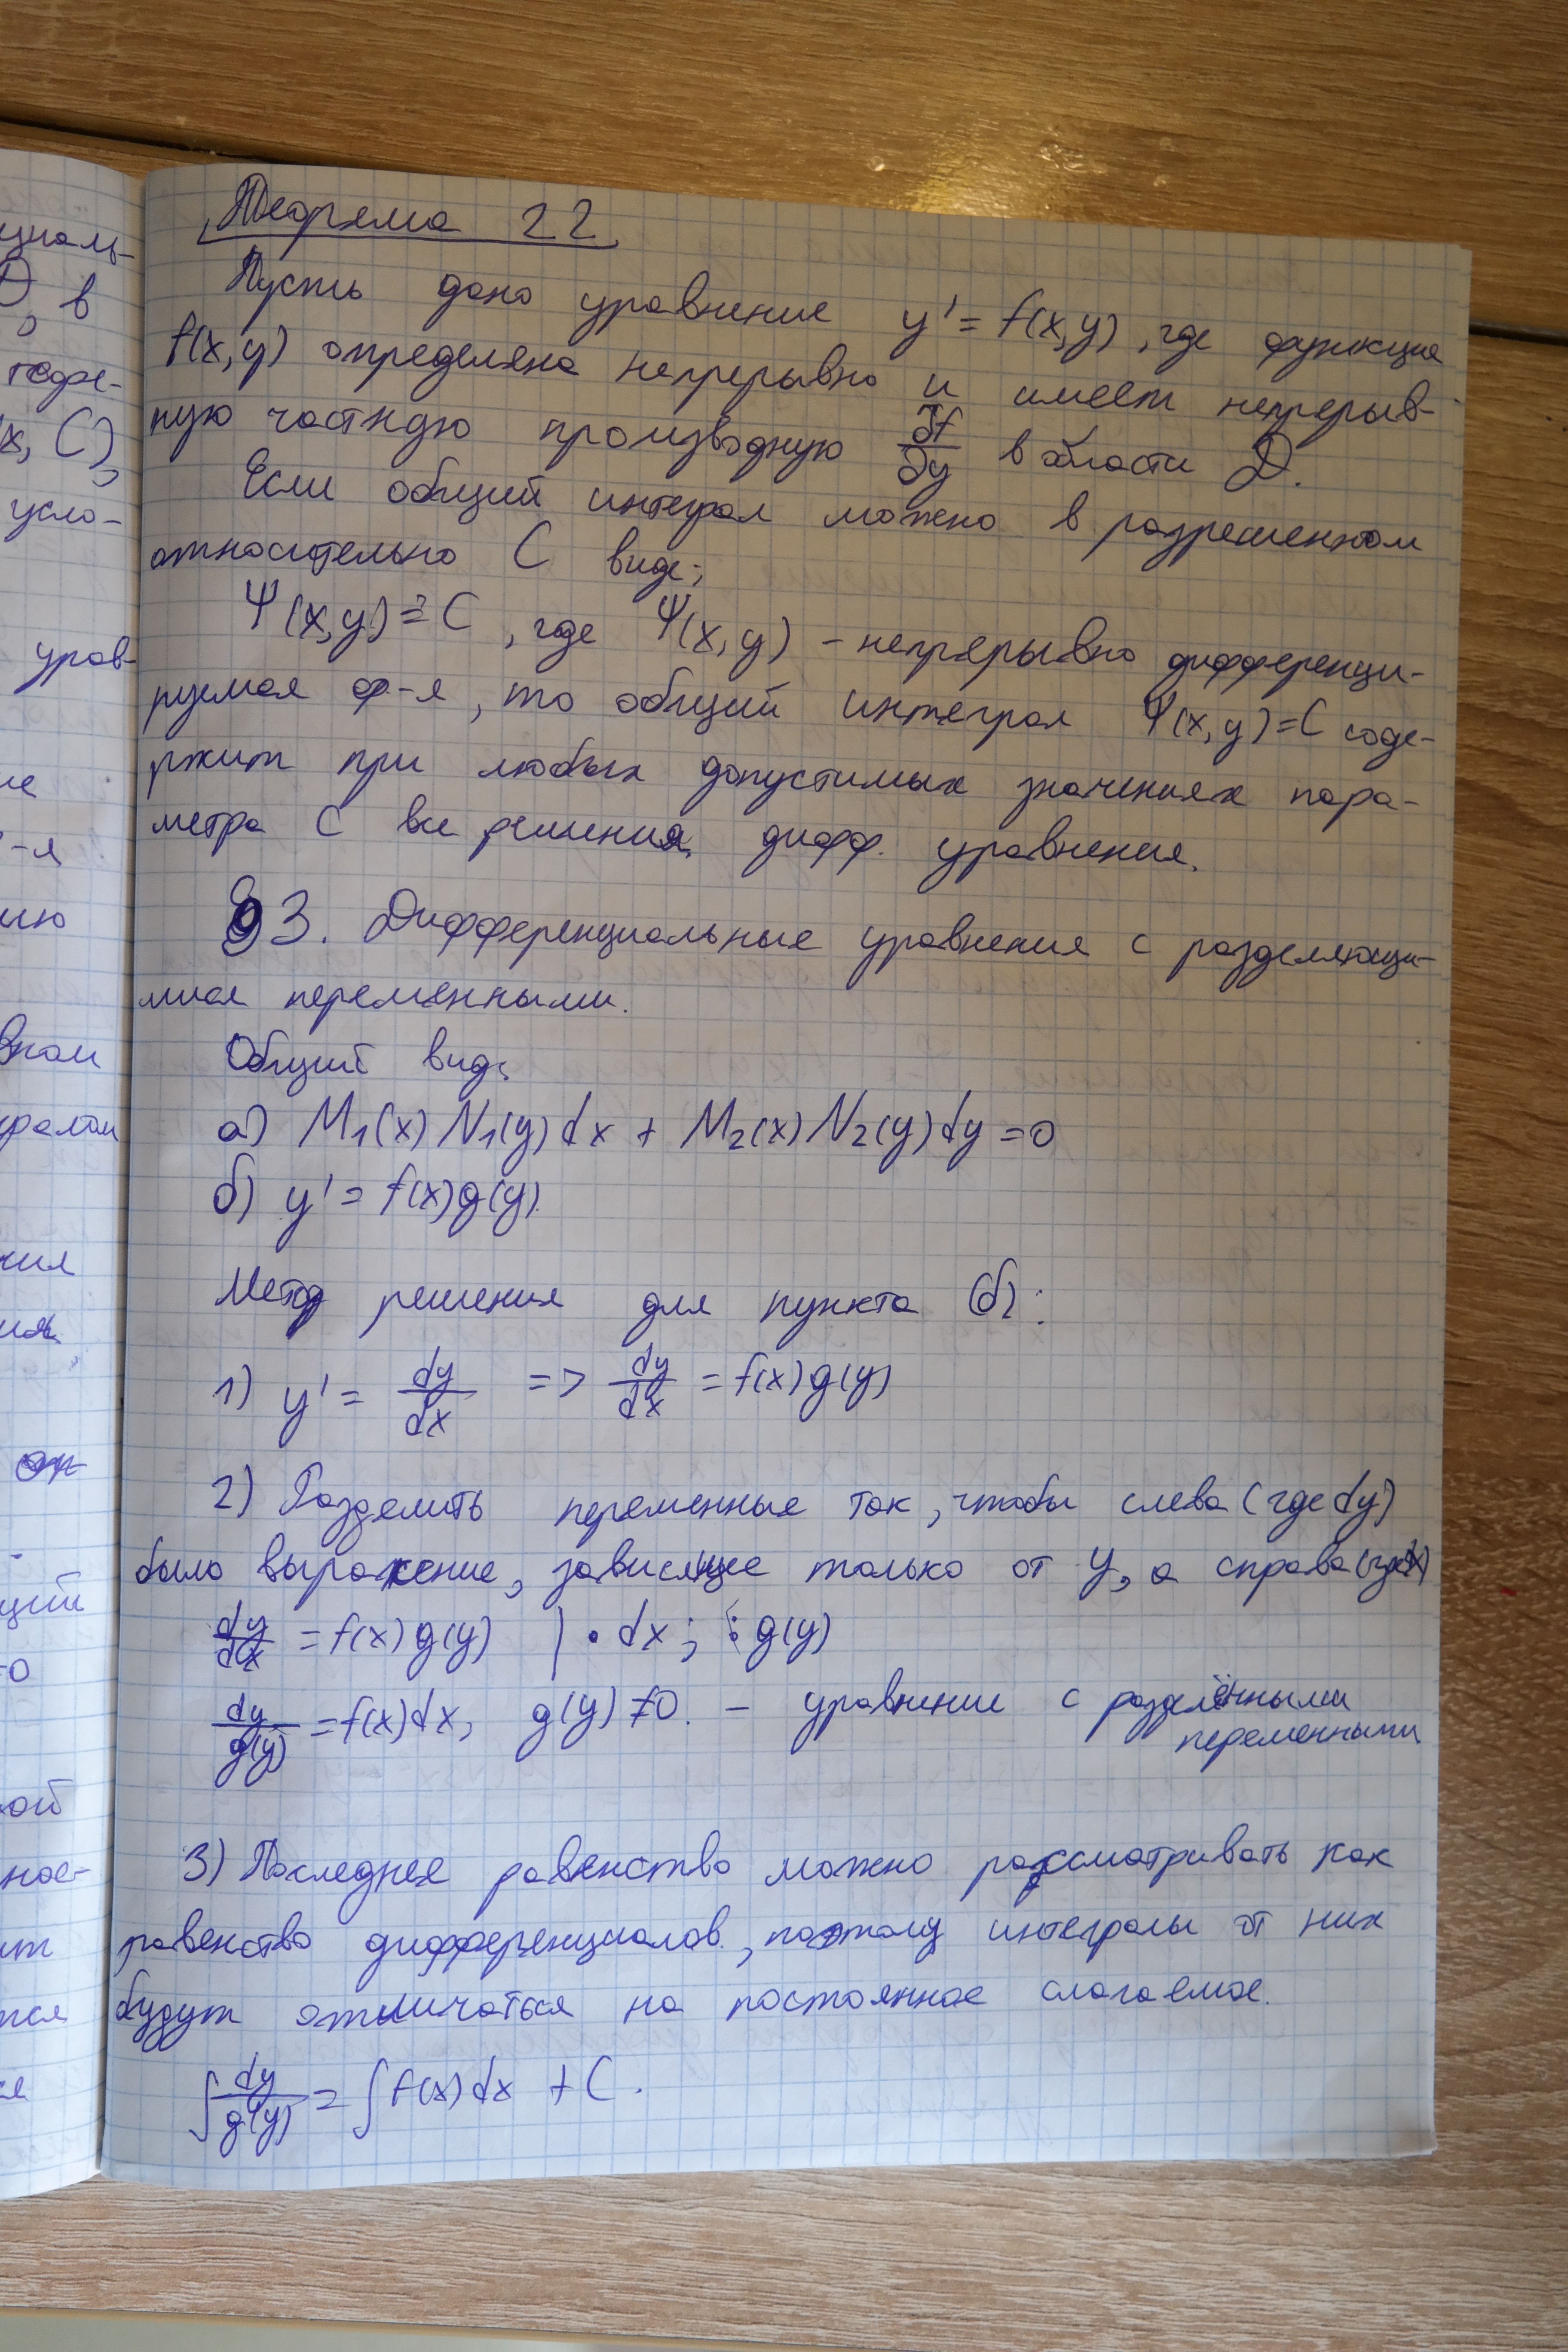 Теорема 22
Пусть дано уравнение y' = f(x,y), где функция
f(x,y) определена непрерывно и имеет непрерыв-
ную частную производную ∂f/∂y в области D.
Если общий интеграл можно в разрешенном
относительно C виде:
Ψ(x,y) = C, где Ψ(x,y) – непрерывно дифференци-
руемая ф-я, то общий интеграл Ψ(x,y)=C соде-
ржит при любых допустимых значениях пара-
метра C все решения дифф. уравнения.
§3. Дифференциальные уравнения с разделяющи-
мися переменными.
Общий вид:
а) M₁(x) N₁(y) dx + M₂(x) N₂(y) dy = 0
б) y' = f(x) g(y).
Метод решения для пункта (б):
1) y' = dy/dx => dy/dx = f(x) g(y)
2) Разделить переменные так, чтобы слева (где dy)
было выражение, зависящее только от y, а справа (где dx)
dy/dx = f(x) g(y) | · dx; : g(y)
dy/g(y) = f(x) dx, g(y) ≠ 0. – уравнение с разделёнными
переменными
3) Последнее равенство можно рассматривать как
равенство дифференциалов, поэтому интегралы от них
будут отличаться на постоянное слагаемое.
∫ dy/g(y) = ∫ f(x) dx + C.
циаль-
D, в
x, C),
усло-
урав-
-я
ию
вном
ния
ций
=0
кой
ное-
ит
тся